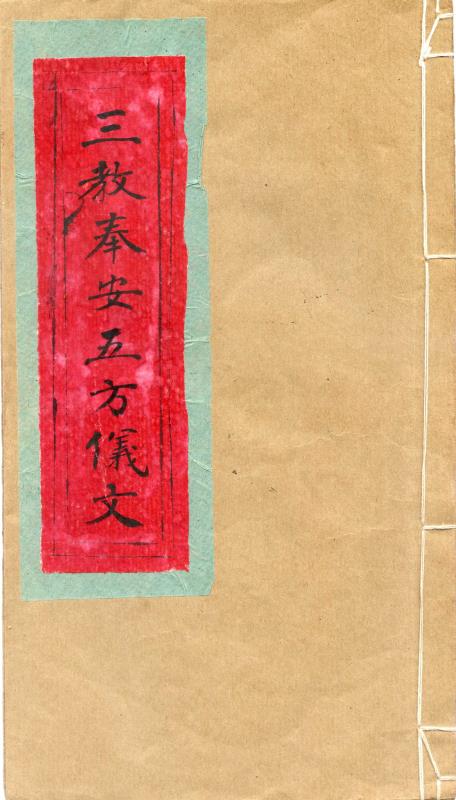 三教奉安五方儀文